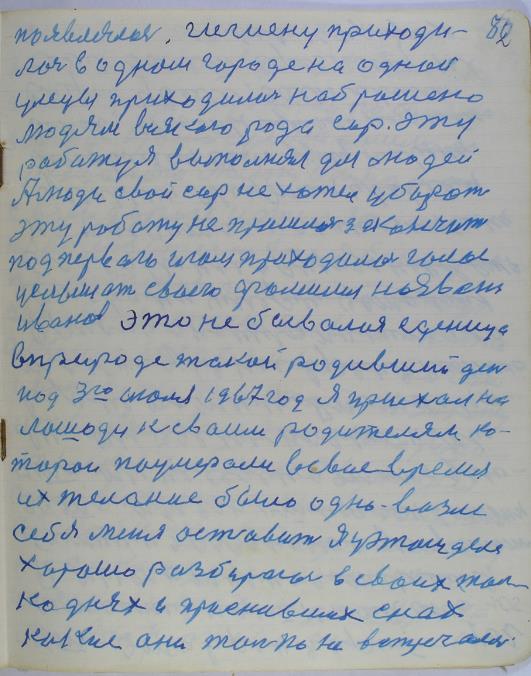 82
появлялся. гигиену приходи-
лося в одном городе на одной
улицы приходилося наброшено
людям всякого рода сор. эту
работу я выполнял для людей
А люди свой сор не хотел убарат
эту работу не пришлося закончит
под первого июля приходилося голос
услышат своего фамилии назват
Иванов Это не бывалоя еденица
в природе такой родивший ден
под 3го июля 1967 год Я приехал на
лошоди к своим родителям ко-
торои поумерали в свое время
их желание было одно-возле
себя меня оставит Я у этом деле
хорошо разбираюс в своих
днях и приснивших снах
какие они не встречалис